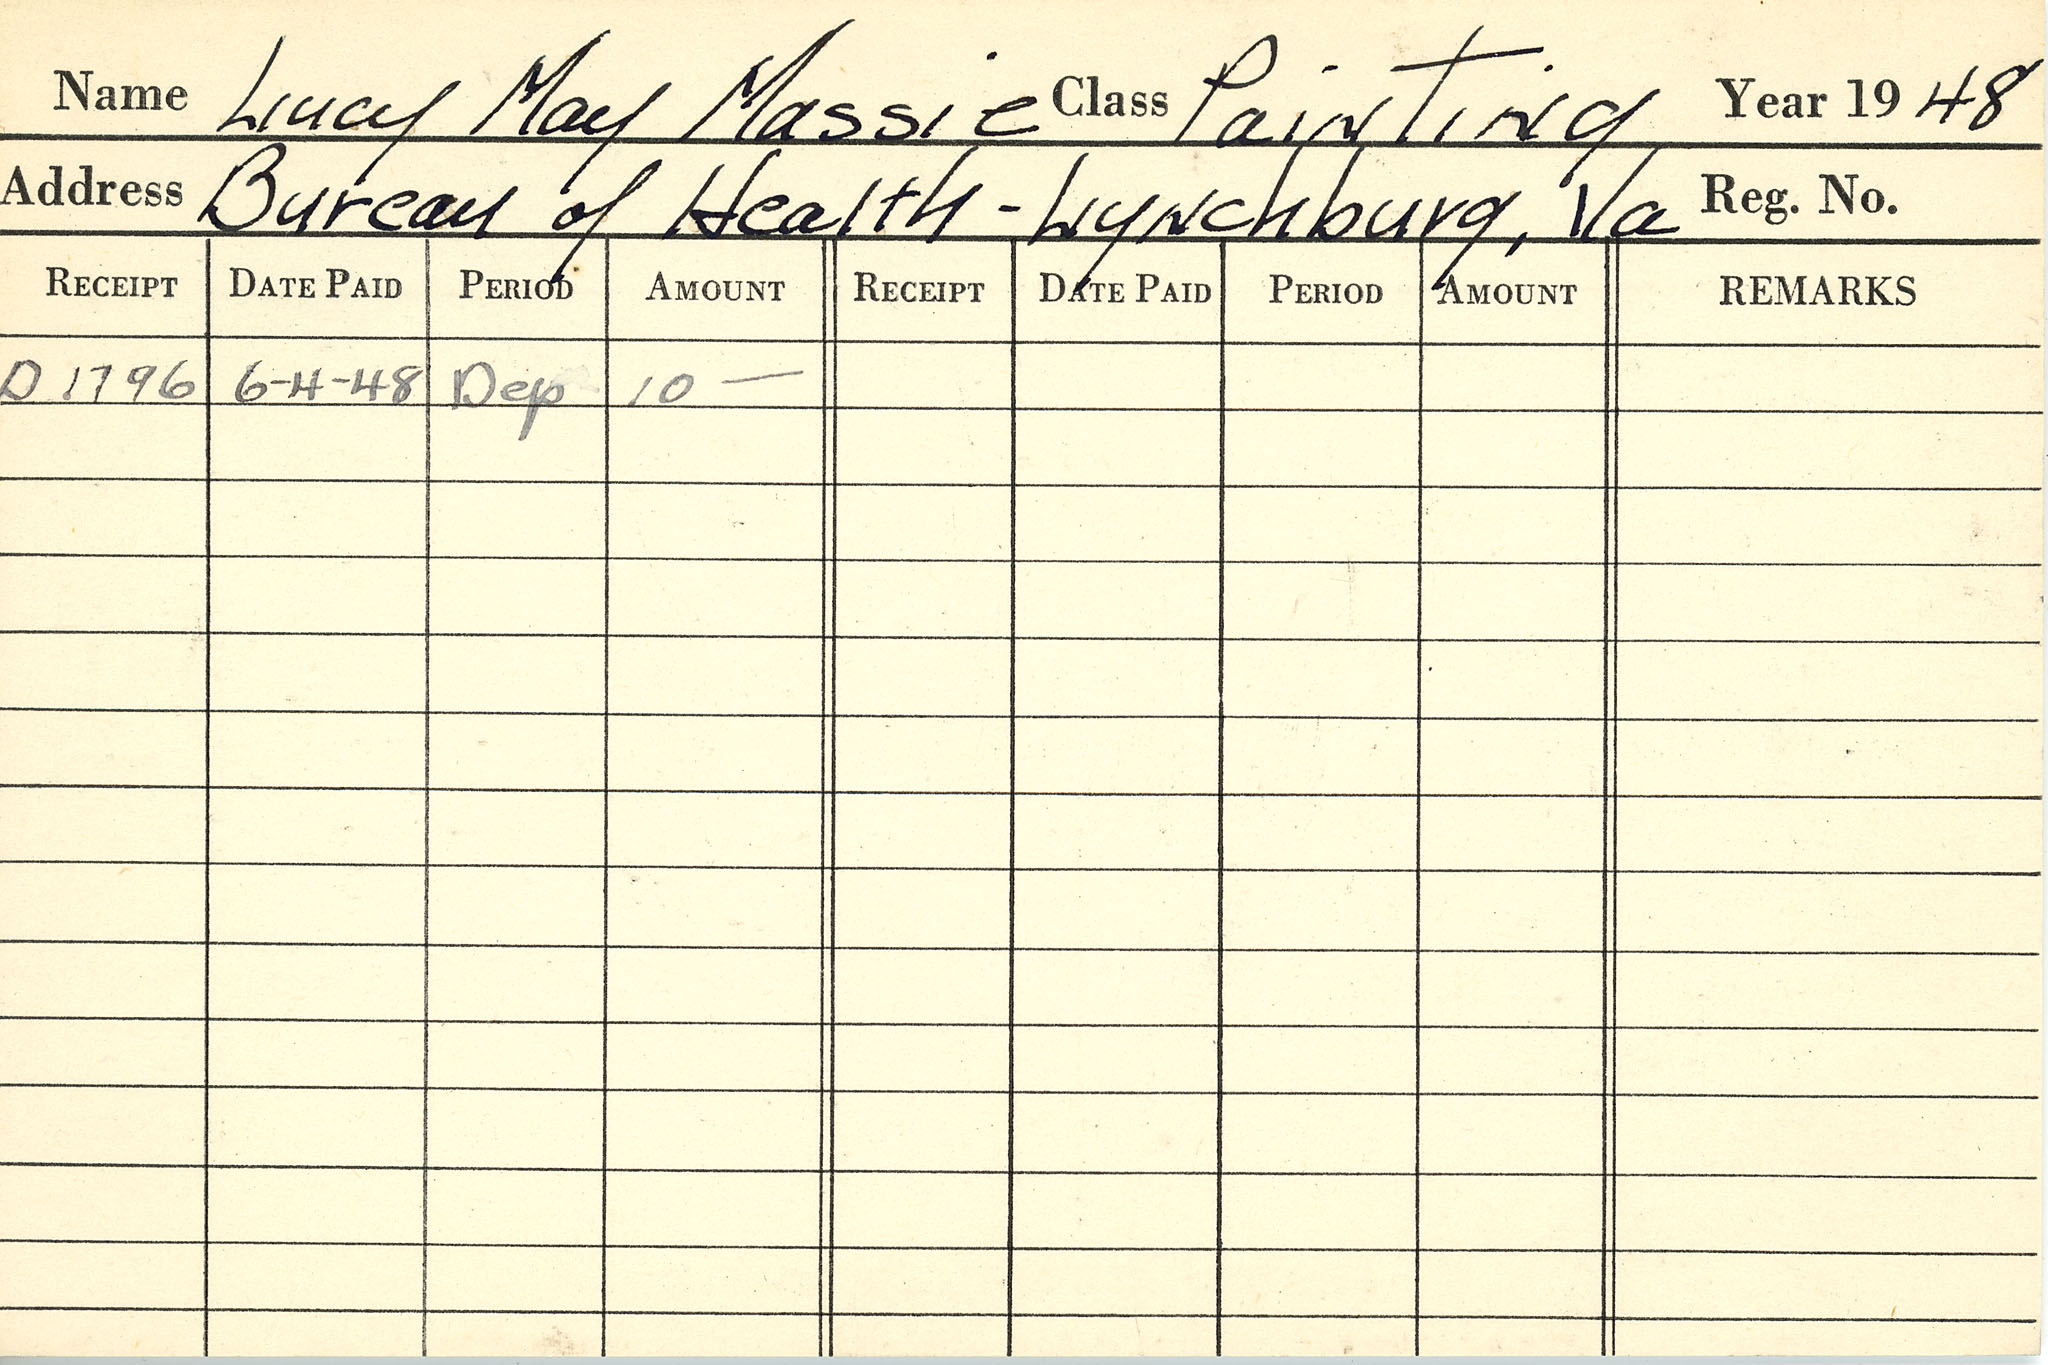 Name Lucy May Massie Class Painting Year 1948
Address Bureau of Health - Lynchburg, Va Reg. No.
RECEIPT DATE PAID PERIOD AMOUNT RECEIPT DATE PAID PERIOD AMOUNT REMARKS
D 1796 6-4-48 Dep 10 —